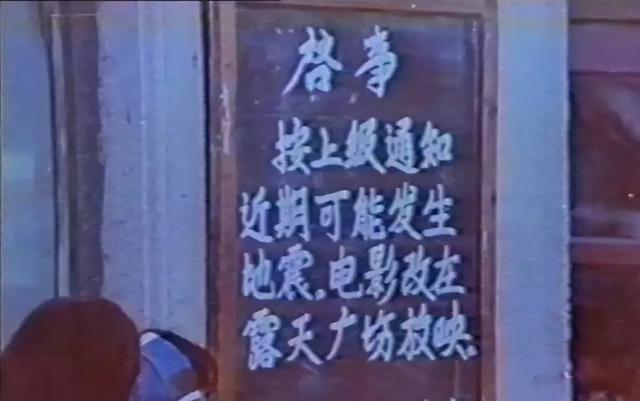 启事
按上级通知
近期可能发生
地震，电影改在
露天广场放映。